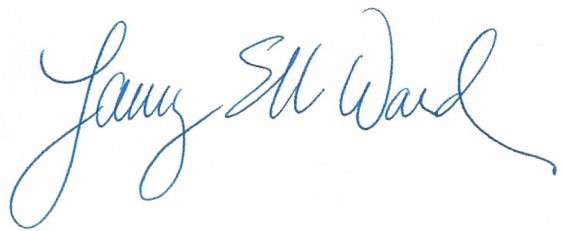 Larry Ell Ward